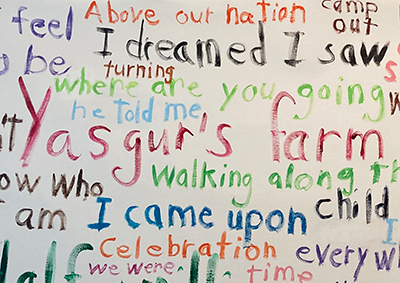 Above our nation camp
I feel out
I dreamed I saw
to be turning s
where are you going
he told me w
n't Yasgur's farm
walking along th
ow who
child
I am I came upon I
Celebration everywh
we were
Half time